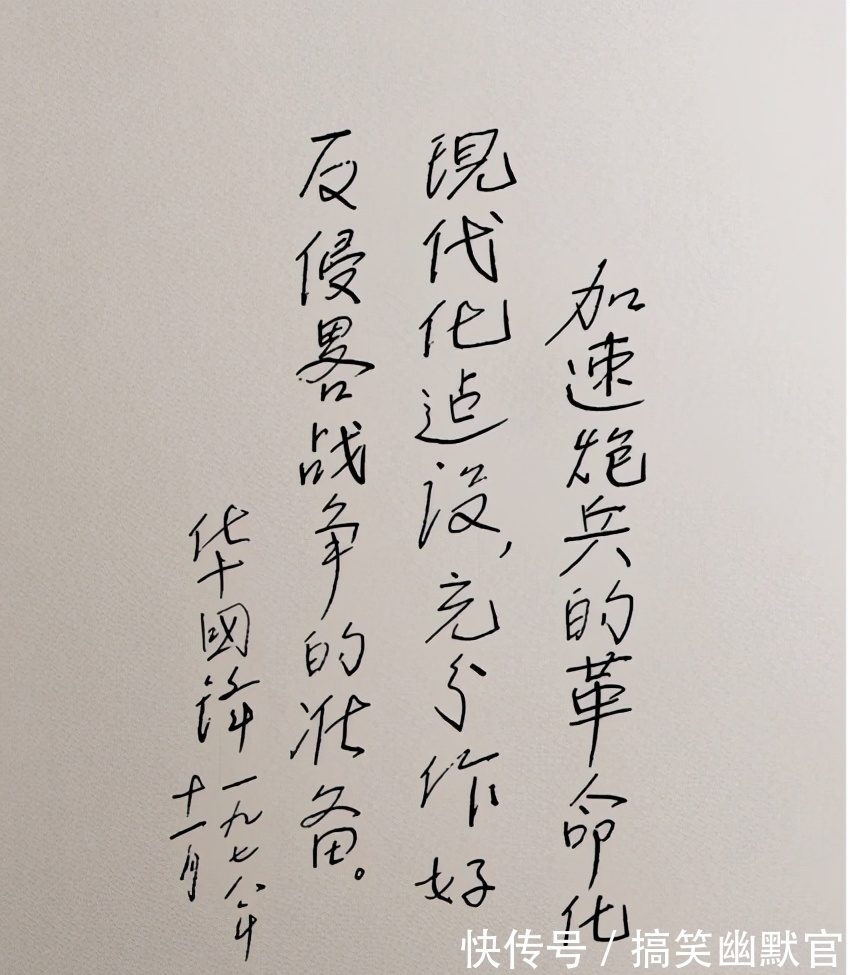 加速炮兵的革命化
現代化迠设，充分作好
反侵畧战争的准备。
华國锋
一九七八年
十一月
快传号 / 搞笑幽默官